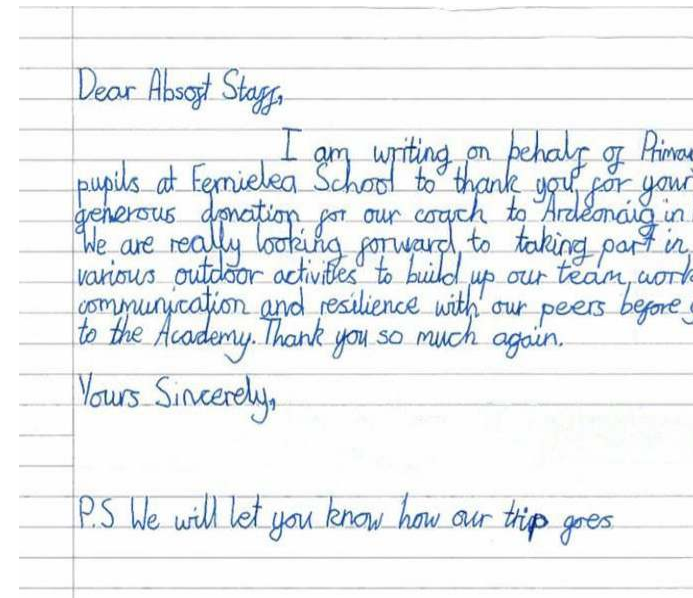 Dear Absoft Staff,
I am writing on behalf of Primar
pupils at Fernielea School to thank you for your
generous donation for our coach to Ardeonaig in
We are really looking forward to taking part in
various outdoor activities to build up our team work
communication and resilience with our peers before g
to the Academy. Thank you so much again.
Yours Sincerely,
P.S We will let you know how our trip goes